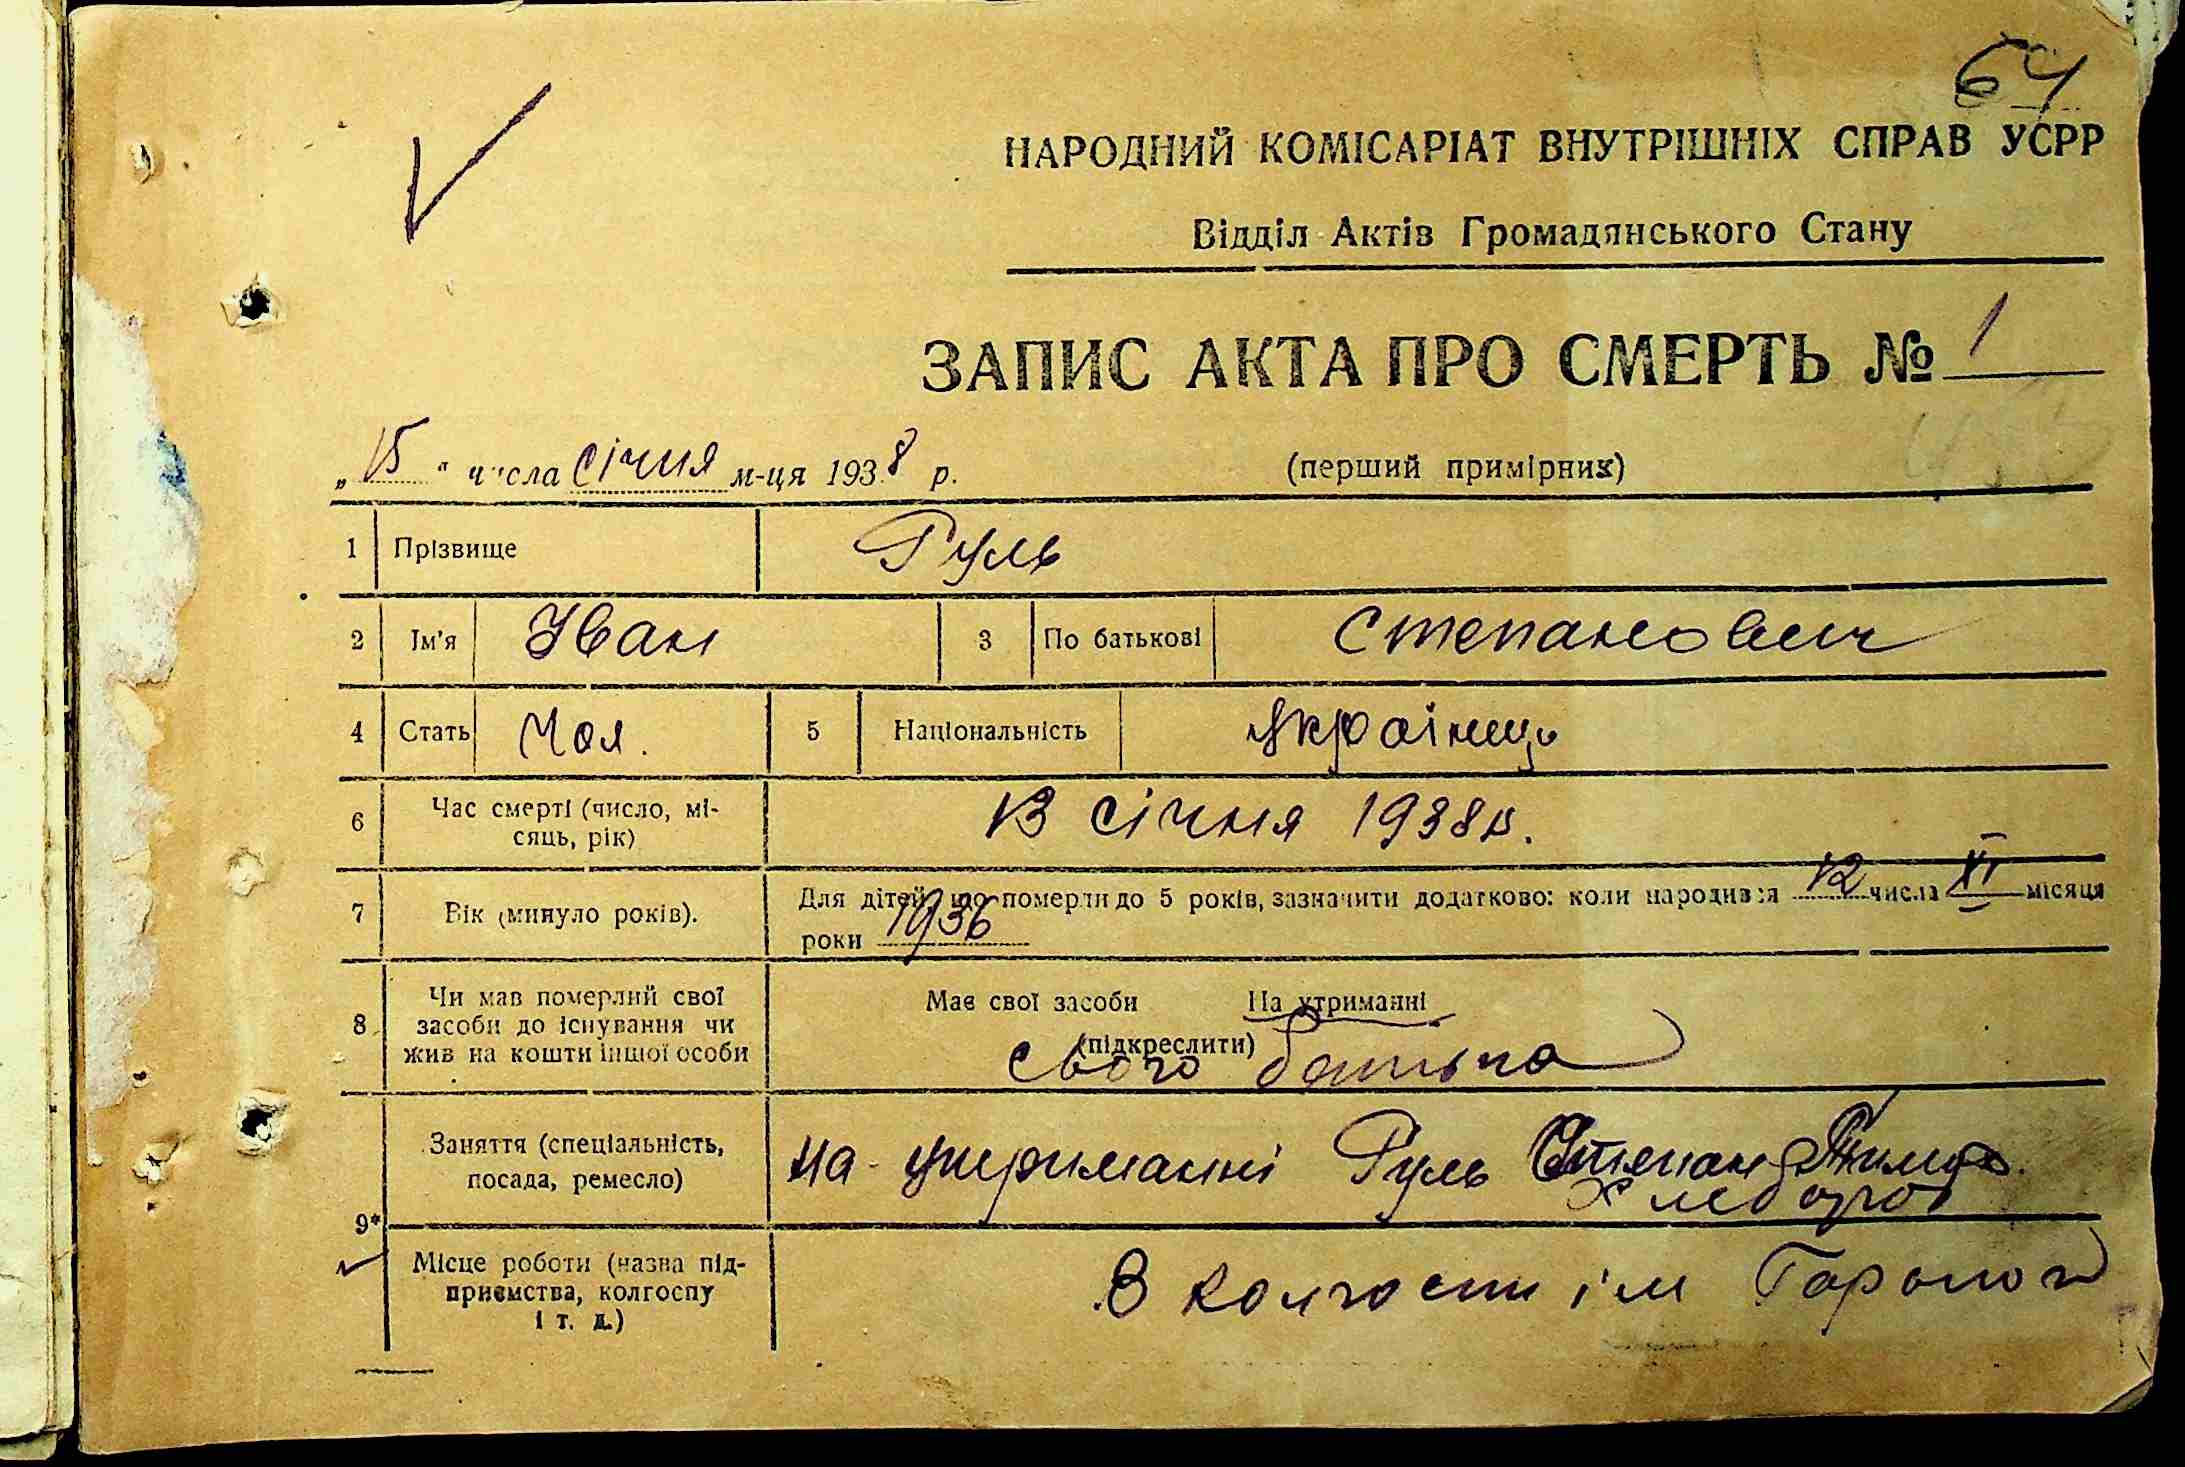 64
НАРОДНИЙ КОМІСАРІАТ ВНУТРІШНІХ СПРАВ УСРР
Відділ Актів Громадянського Стану
ЗАПИС АКТА ПРО СМЕРТЬ № 1
„15“ числа січня м-ця 1938 р. (перший примірник)
1 Прізвище Руль
2 Ім'я Іван 3 По батькові Степанович
4 Стать Чол. 5 Національність українець
6 Час смерті (число, мі-
сяць, рік) 13 січня 1938 р.
7 Вік (минуло років). Для дітей, що померли до 5 років, зазначити додатково: коли народився 12 числа XI місяця
роки 1936
8 Чи мав померлий свої
засоби до існування чи
жив на кошти іншої особи
Має свої засоби На утриманні
(підкреслити)
свого батька
9* Заняття (спеціальність,
посада, ремесло)
на утриманні Руль Степан Тимоф.
хлебороб
Місце роботи (назва під-
приємства, колгоспу
і т. д.)
В колгоспі ім